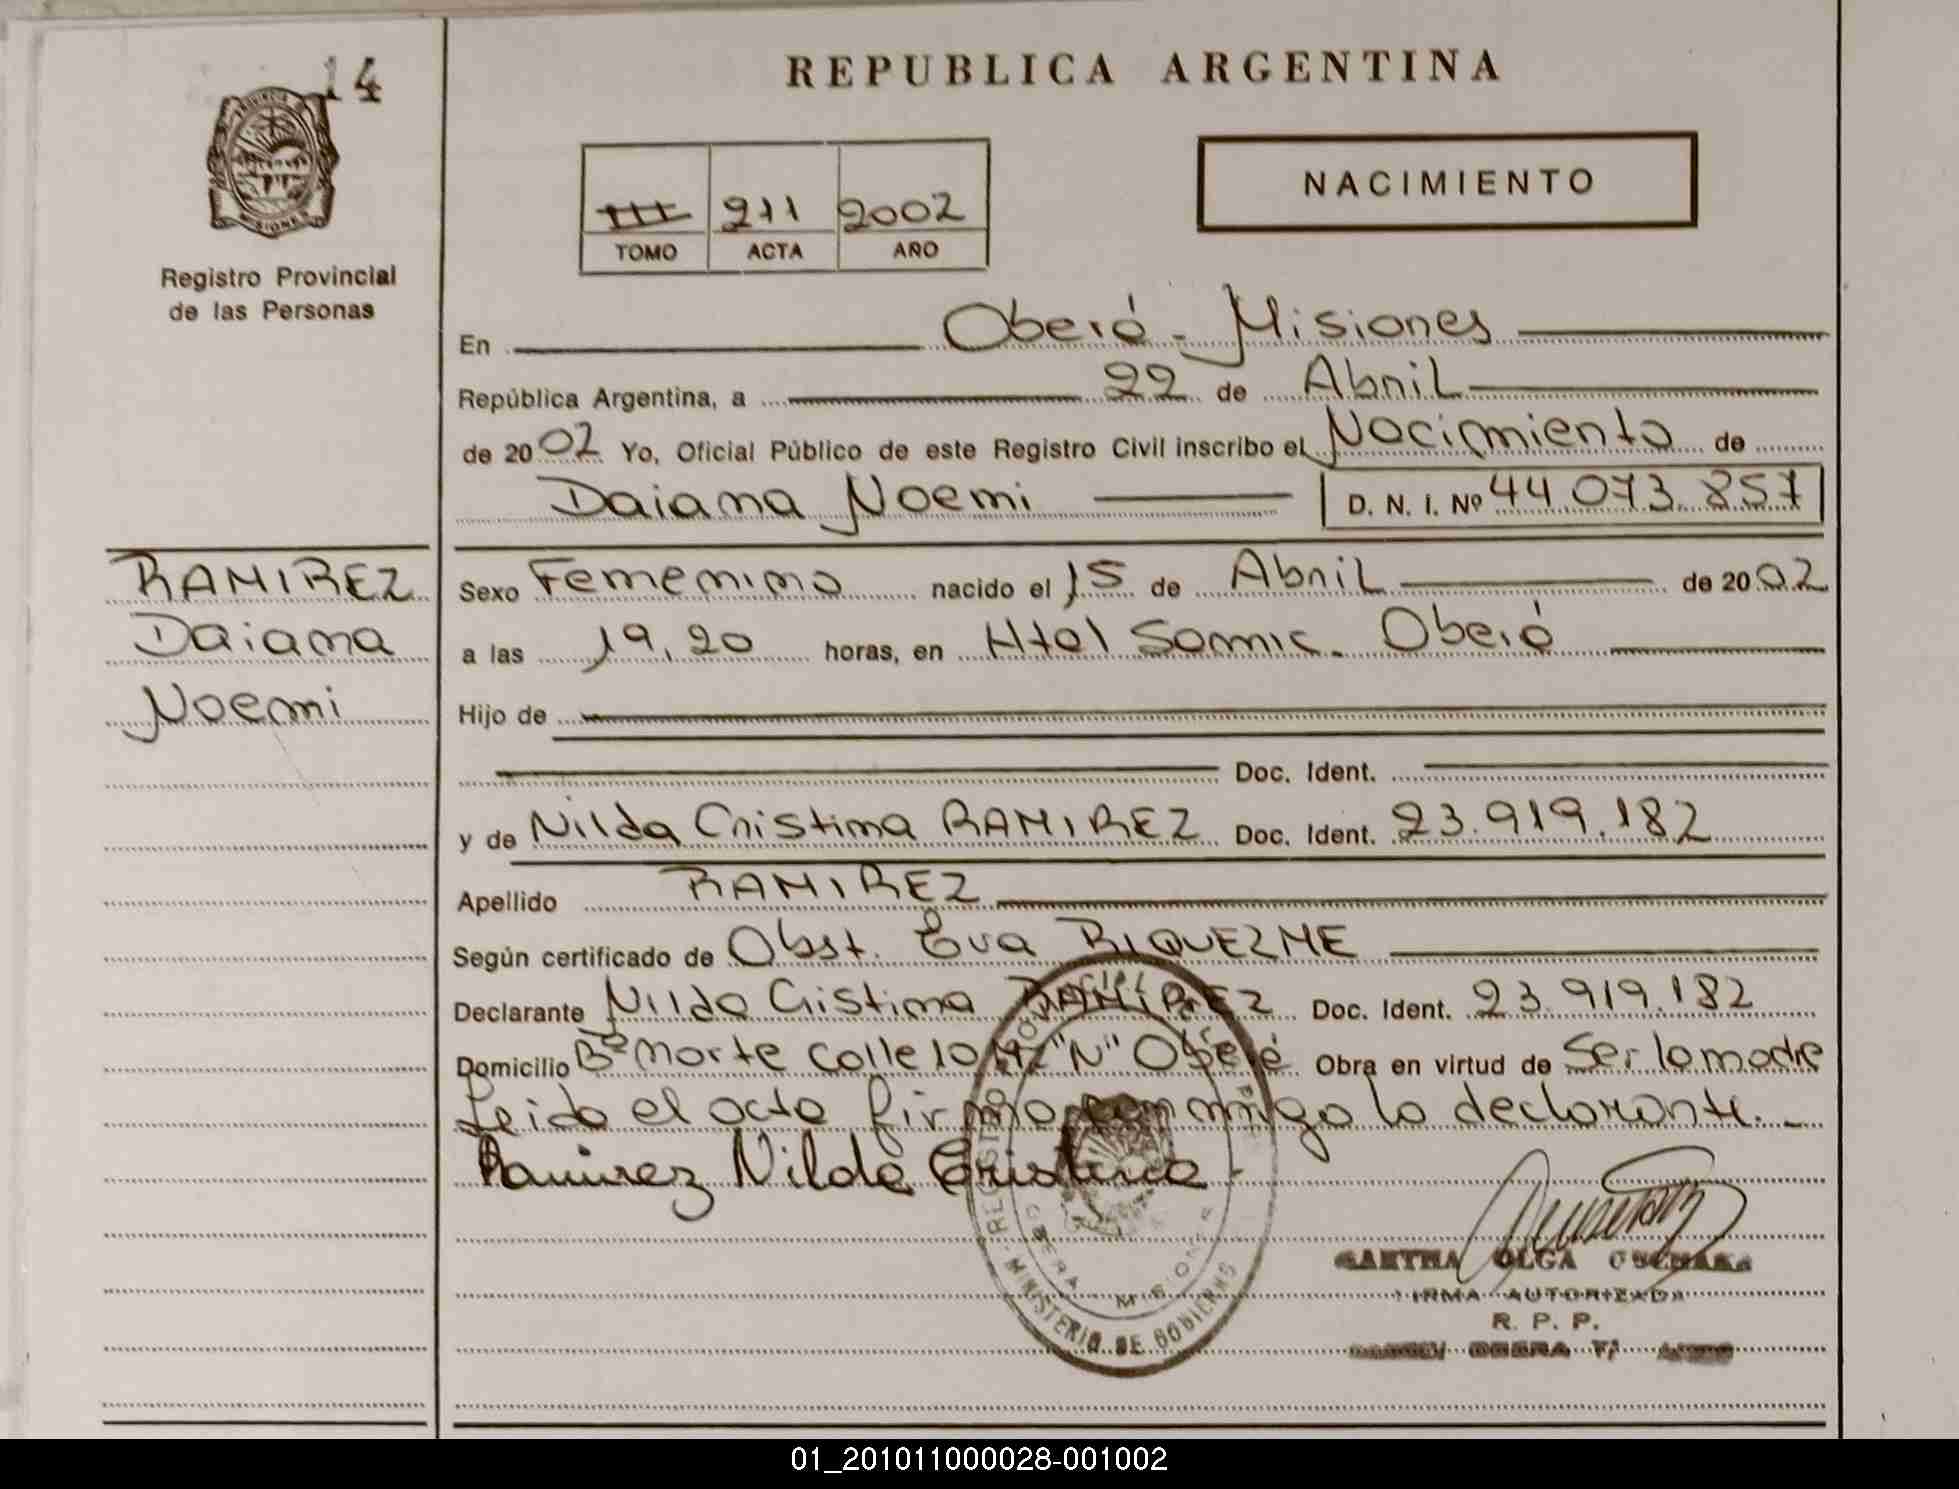 14
REPUBLICA ARGENTINA
NACIMIENTO
III 211 2002
TOMO ACTA AÑO
MISIONES
Registro Provincial
de las Personas
En Oberá - Misiones
República Argentina, a 22 de Abril
de 2002 Yo, Oficial Público de este Registro Civil inscribo el Nacimiento de
Daiana Noemi D. N. I. Nº 44.073.857
RAMIREZ
Daiana
Noemi
Sexo Femenino nacido el 15 de Abril de 2002
a las 19,20 horas, en Htal Samic. Oberá
Hijo de
Doc. Ident.
y de Nilda Cristina RAMIREZ Doc. Ident. 23.919.182
Apellido RAMIREZ
Según certificado de Obst. Eva RIQUEZME
Declarante Nilda Cristina RAMIREZ Doc. Ident. 23.919.182
Domicilio Bº Norte Calle 10 "N" Oberá Obra en virtud de Ser la madre
Leida el acta firma conmigo la declarante.-
Ramirez Nilda Cristina
MINISTERIO DE GOBIERNO
OLGA
FIRMA AUTORIZADA
R. P. P.
01_201011000028-001002